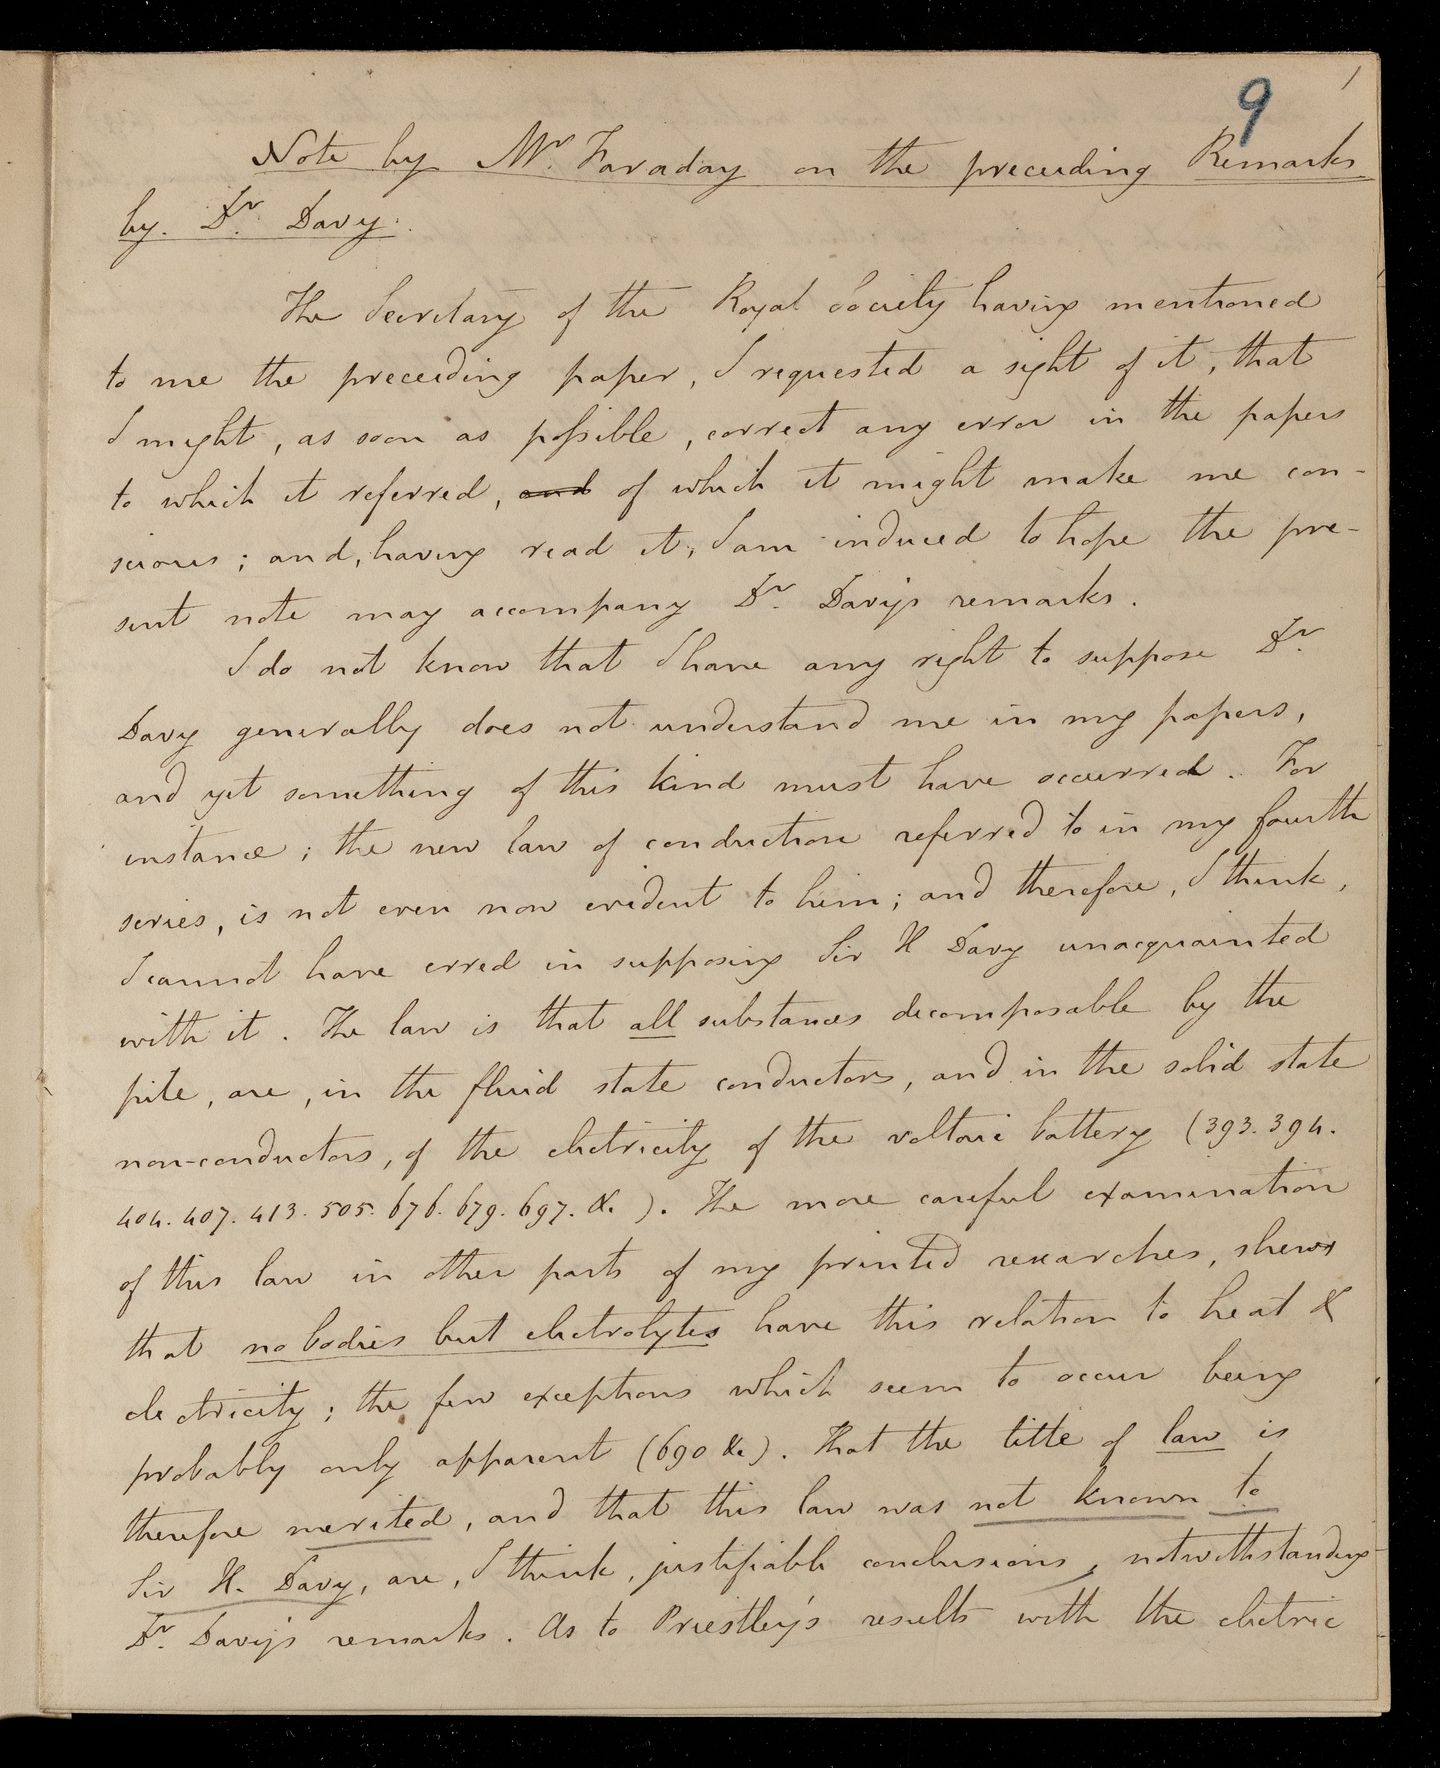 9
1
Note by Mr. Faraday on the preceeding Remarks
by Dr. Davy.
The Secretary of the Royal Society having mentioned
to me the preceeding paper, I requested a sight of it, that
I might, as soon as possible, correct any error in the papers
to which it referred, and of which it might make me con-
scious; and, having read it, I am induced to hope the pre-
sent note may accompany Dr. Davy's remarks.
I do not know that I have any right to suppose Dr.
Davy generally does not understand me in my papers,
and yet something of this kind must have occurred. For
instance; the new law of conduction referred to in my fourth
series, is not even now evident to him; and therefore, I think,
I cannot have erred in supposing Sir H Davy unacquainted
with it. The law is that all substances decomposable by the
pile, are, in the fluid state conductors, and in the solid state
non-conductors, of the electricity of the voltaic battery (393. 394.
404. 407. 413. 505. 676. 679. 697. &c ). The more careful examination
of this law in other parts of my printed researches, shews
that no bodies but electrolytes have this relation to heat &
electricity; the few exceptions which seem to occur being
probably only apparent (690 &c). That the title of law is
therefore merited, and that this law was not known to
Sir H. Davy, are, I think, justifiable conclusions, notwithstanding
Dr. Davy's remarks. As to Priestley's results with the electric